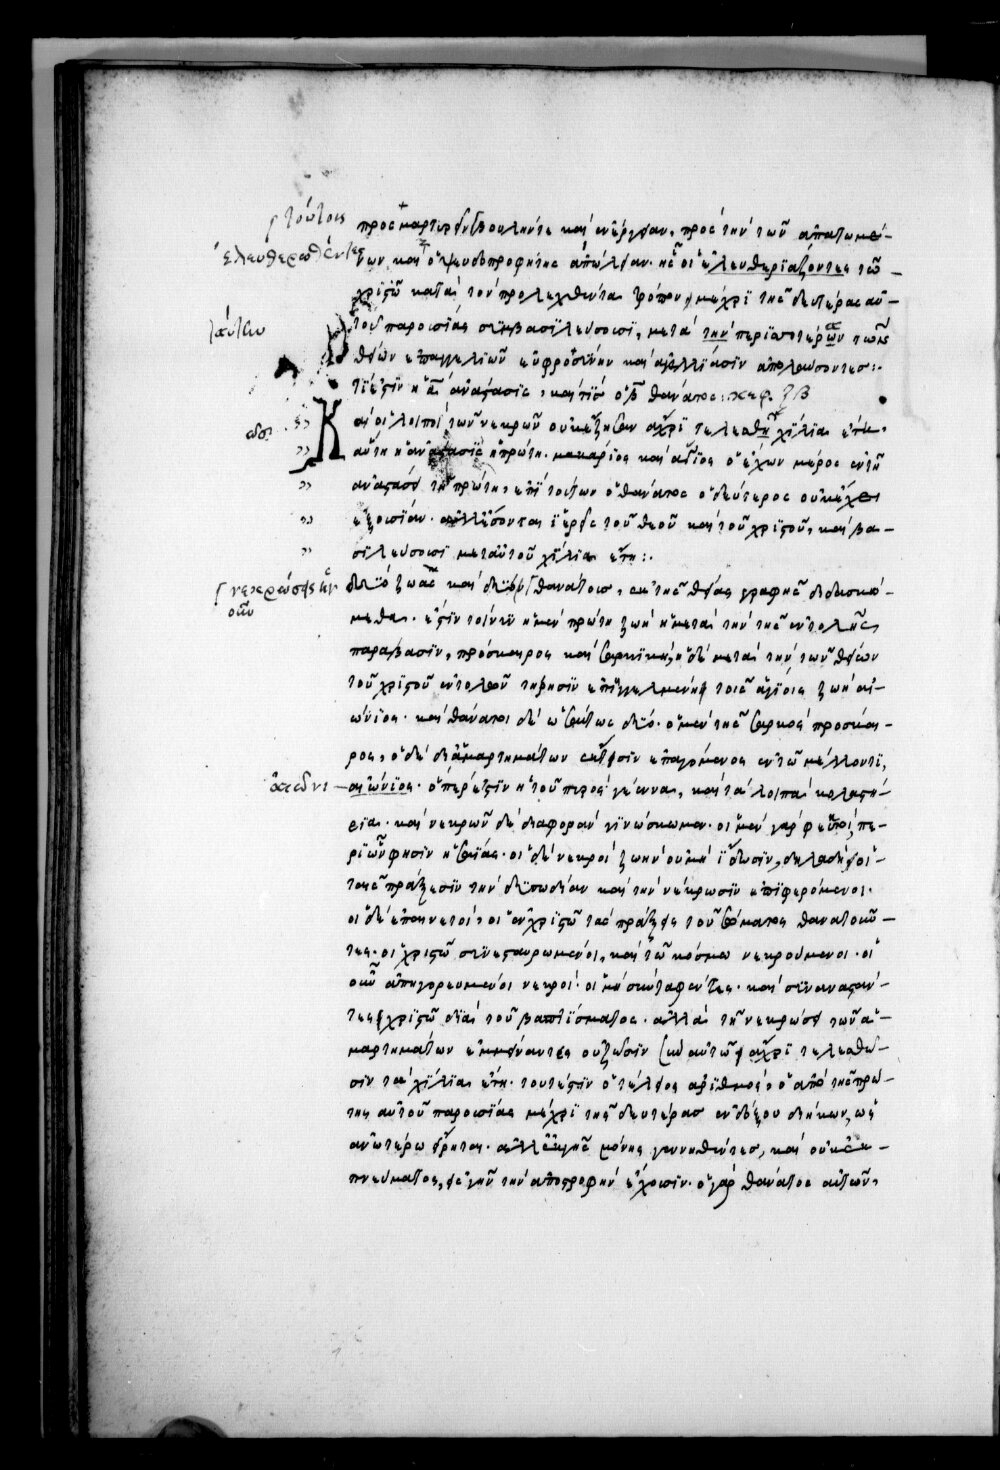 τούτοις
ἐλευθερωθέντες
ταύτην
προσμαρτυρεῖ βουληντε καὶ ἐνέργειαν, πρὸς τὴν τῶν ἀπατωμέ-
νων καὶ ὁ ψευδοπροφήτης ἀπώλειαν. ἧς οἱ ἐλευθεριάζοντες τῶ
χριστῶ κατὰ τὸν προλεχθέντα τρόπον, μέχρι τῆς δευτέρας αὐ-
τοῦ παρουσίας συμβασιλεύσουσι, μετὰ τὴν περισσοτέρων τῶν
θείων ἐπαγγελιῶν εὐφροσύνην καὶ ἀγαλλίασιν ἀπολαύσοντες:.
τί ἐστιν ἡ α ἀνάστασις, καὶ τίς ὁ β θάνατος: κεφ. ξβ
Καὶ οἱ λοιποὶ τῶν νεκρῶν οὐκ ἔζησαν ἄχρι τελεσθῆ χίλια ἔτη.
αὕτη ἡ ἀνάστασις ἡ πρώτη. μακάριος καὶ ἅγιος ὁ ἔχων μέρος ἐν τῆ
ἀναστάσει τῆ πρώτη, ἐπὶ τούτων ὁ θάνατος ὁ δεύτερος οὐκ ἔχει
ἐξουσίαν. ἀλλ' ἔσονται ἱερεῖς τοῦ θεοῦ καὶ τοῦ χριστοῦ, καὶ βα-
σιλεύσουσι μετ' αὐτοῦ χίλια ἔτη:.
νεκρώσεις
οὖν
δύο ζωὰς καὶ δύο θανάτους, ἐκ τῆς θείας γραφῆς διδασκό-
μεθα. ἔστιν τοίνυν ἡ μὲν πρώτη ζωὴ ἡ μετὰ τὴν τῆς ἐντολῆς
παράβασιν, πρόσκαιρος καὶ σαρκική, ἡ δὲ μετὰ τὴν τῶν θείων
τοῦ χριστοῦ ἐντολῶν τήρησιν ἐπηγγελμένη τοῖς ἁγίοις ζωὴ αἰ-
ώνιος. καὶ θάνατοι δὲ ὡσαύτως δύο. ὁ μὲν τῆς σαρκὸς πρόσκαι-
ρος, ὁ δὲ δι' ἁμαρτημάτων ἔκτισιν ἐπαγόμενος ἐν τῶ μέλλοντι,
αἰώνιος. ὅπερ ἐστὶν ἡ τοῦ πυρὸς γέεννα, καὶ τὰ λοιπὰ κολαστή-
ρια. καὶ νεκρῶν δὲ διαφορὰν γινώσκωμεν. οἱ μὲν γὰρ φευκτοί, πε-
ρὶ ὧν φησιν ἡσαΐας. οἱ δὲ νεκροὶ ζωὴν οὐ μὴ ἴδωσιν, δηλαδὴ οἱ
τοῖς πράξεσιν τὴν δυσωδίαν καὶ τὴν νέκρωσιν ἐπιφερόμενοι.
οἱ δὲ ἐπαινετοί, οἱ ἐν χριστῶ τὰς πράξεις τοῦ σώματος θανατοῦν-
τες. οἱ χριστῶ συνεσταυρωμένοι, καὶ τῶ κόσμω νεκρούμενοι. οἱ
οὖν ἀπηγορευμένοι νεκροί. οἱ μὴ συνταφέντες. καὶ συναναστάν-
τες χριστῶ διὰ τοῦ βαπτίσματος. ἀλλὰ τῆ νεκρώσει τῶν ἁ-
μαρτημάτων ἐμμείναντες οὐ ζήσουσιν σὺν αὐτῶ ἄχρι τελεσθῶ-
σιν τὰ χίλια ἔτη. τουτέστιν ὁ τέλειος ἀριθμός, ὁ ἀπὸ τῆς πρώ-
της αὐτοῦ παρουσίας μέχρι τῆς δευτέρας ἐνδόξου διήκων, ὡς
ἀνωτέρω εἴρηται. ἀλλ' ἐκ γῆς μόνης γεννηθέντες, καὶ οὐκ ἐκ
πνεύματος, εἰς γῆν τὴν ἀποστροφὴν ἔχουσιν. ὁ γὰρ θάνατος αὐτῶν,